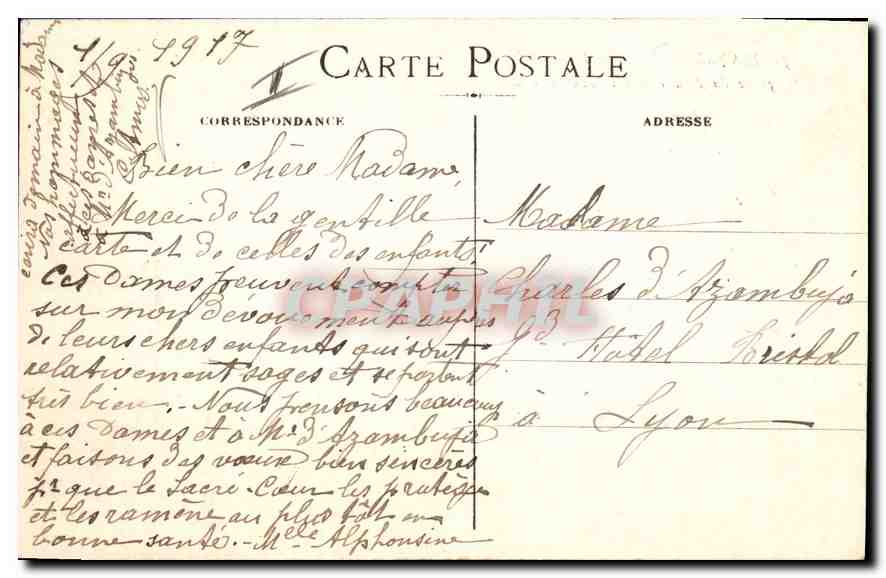 1/9 1917
CARTE POSTALE
CORRESPONDANCE
ADRESSE
Bien chère Madame,
Merci de la gentille
carte et de celles des enfants!
Ces Dames peuvent compter
sur mon dévouement auprès
de leurs chers enfants qui sont
relativement sages et se portent
très bien. - Nous pensons beaucoup
à ces Dames et à Mr d'Azambuja
et faisons des vœux bien sincères
pr que le Sacré-Cœur les protège
et les ramène au plus tôt en
bonne santé. - Melle Alphonsine
demain à Madame
Nos hommages
à ces Dames
à Mr d'Azambuja
Madame
Charles d'Azambuja
Gd Hôtel Bristol
à Lyon
CPAPHIL